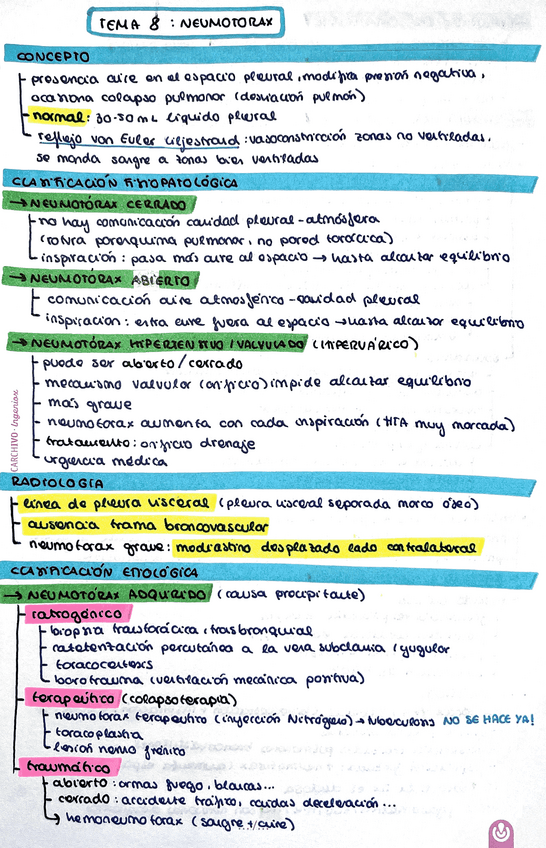 TEMA 8 : NEUMOTORAX
CONCEPTO
presencia aire en el espacio pleural, modifica presión negativa,
ocasiona colapso pulmonar (desviación pulmón)
normal: 30-50 mL líquido pleural
reflejo von Euler Liljestraud: vasoconstricción zonas no ventiladas.
se manda sangre a zonas bien ventiladas
CLASIFICACIÓN FISIOPATOLÓGICA
→ NEUMOTÓRAX CERRADO
no hay comunicación cavidad pleural - atmósfera
(rotura parenquima pulmonar, no pared torácica)
inspiración: pasa más aire al espacio → hasta alcanzar equilibrio
→ NEUMOTÓRAX ABIERTO
comunicación aire atmosférico - cavidad pleural
inspiracion: entra aire fuera al espacio → hasta alcanzar equilibrio
→ NEUMOTÓRAX HIPERTENSIVO / VALVULADO (HIPERVÁRICO)
puede ser abierto / cerrado
mecanismo valvular (orificio) impide alcanzar equilibrio
más grave
neumotorax aumenta con cada inspiración (HTA muy marcada)
tratamiento: orificio drenaje
urgencia médica
CARCHIVO - Ingeniose
RADIOLOGIA
línea de pleura visceral (pleura visceral separada marco óseo)
ausencia trama broncovascular
neumotorax grave: mediastino desplazado lado contralateral
CLASIFICACIÓN ETIOLÓGICA
→ NEUMOTÓRAX ADQUIRIDO (causa precipitante)
iatrogénico
biopsia transtorácica, transbronquial
cateterización percutánea a la vena subclavia / yugular
toracocentesis
barotrauma (ventilación mecánica positiva)
terapeútico (colapsoterapia)
neumotorax terapeutico (inyección Nitrógeno) → tuberculosis NO SE HACE YA!
toracoplastia
lesión nervio frénico
traumático
abierto: armas fuego, blancas...
cerrado: accidente tráfico, caídas deceleración...
→ hemoneumotorax (sangre +/ aire)